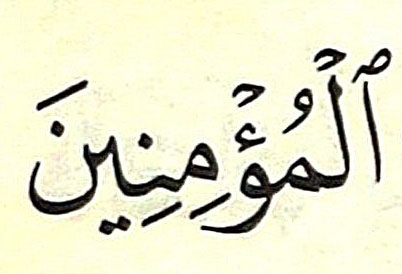 ٱلۡمُؤۡمِنِينَ